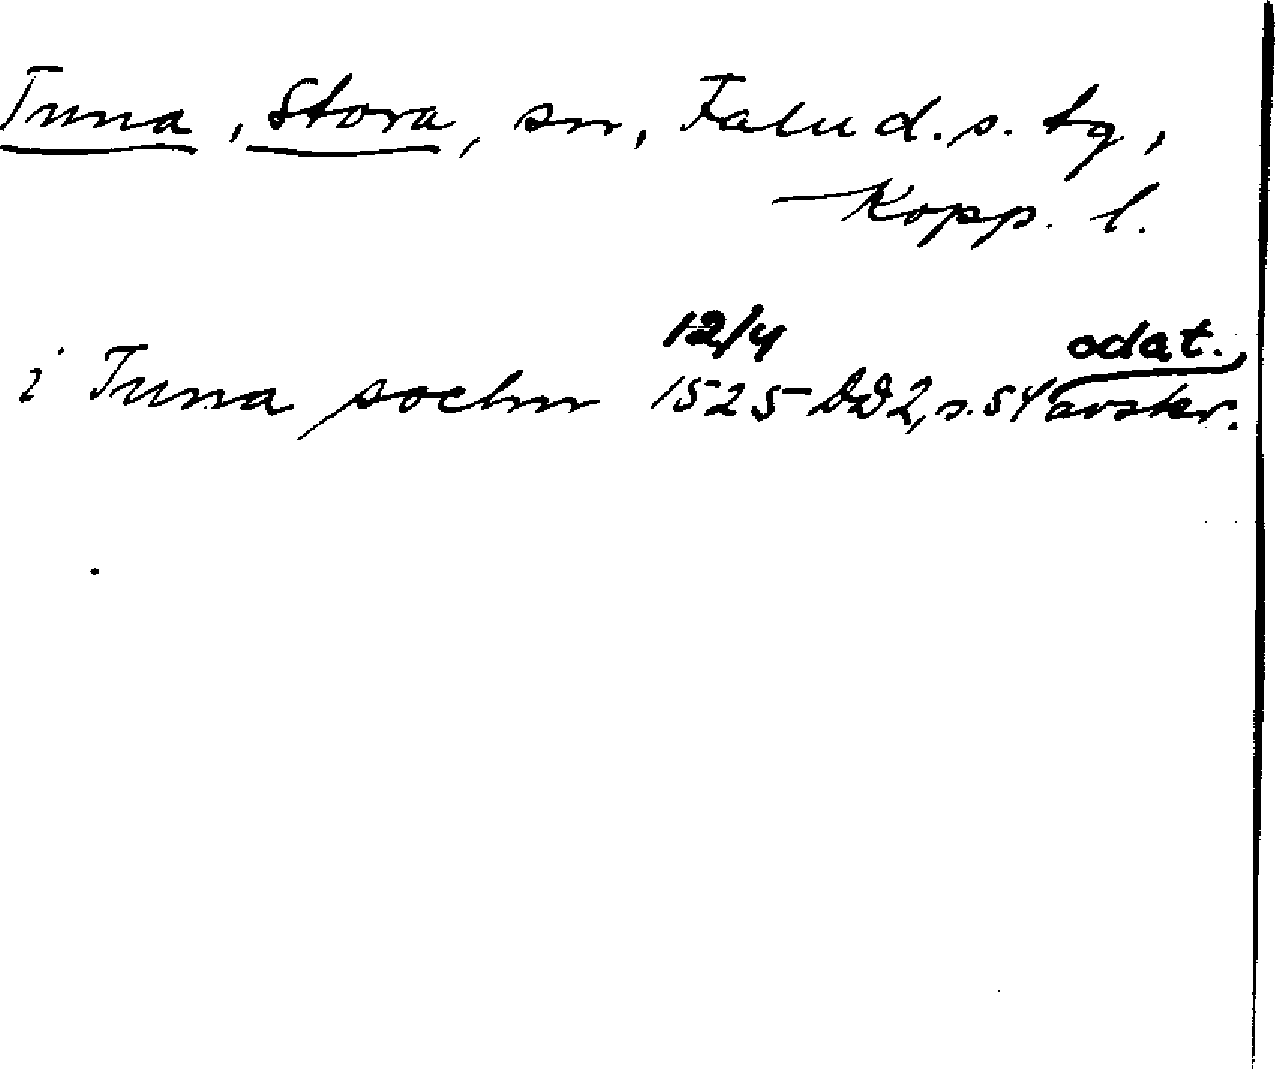 Tuna, Stora, sn, Falu d. s. tg,
Kopp. l.
12/4 odat.
i Tuna sochn 1525 DD2, s. 54 avskr.